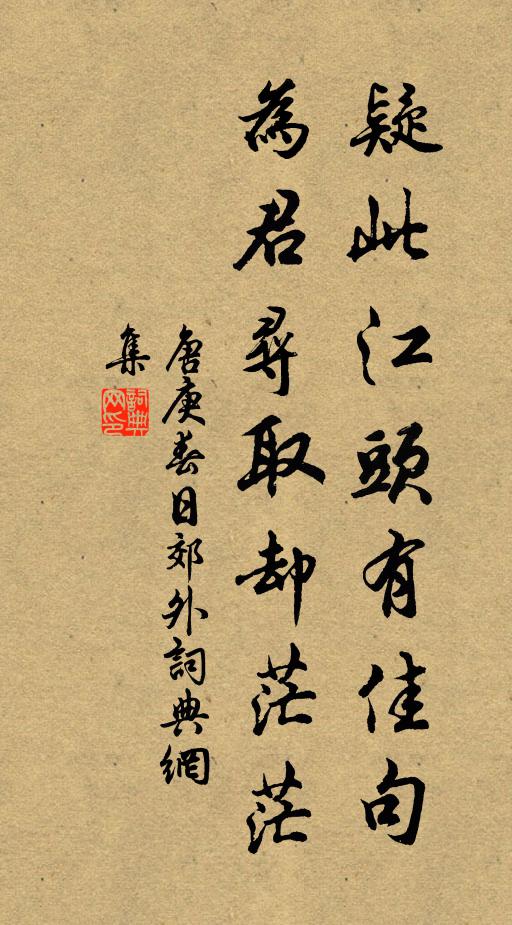 疑此江頭有佳句
為君尋取却茫茫
唐庚春日郊外詞典網
集
詞典
网印